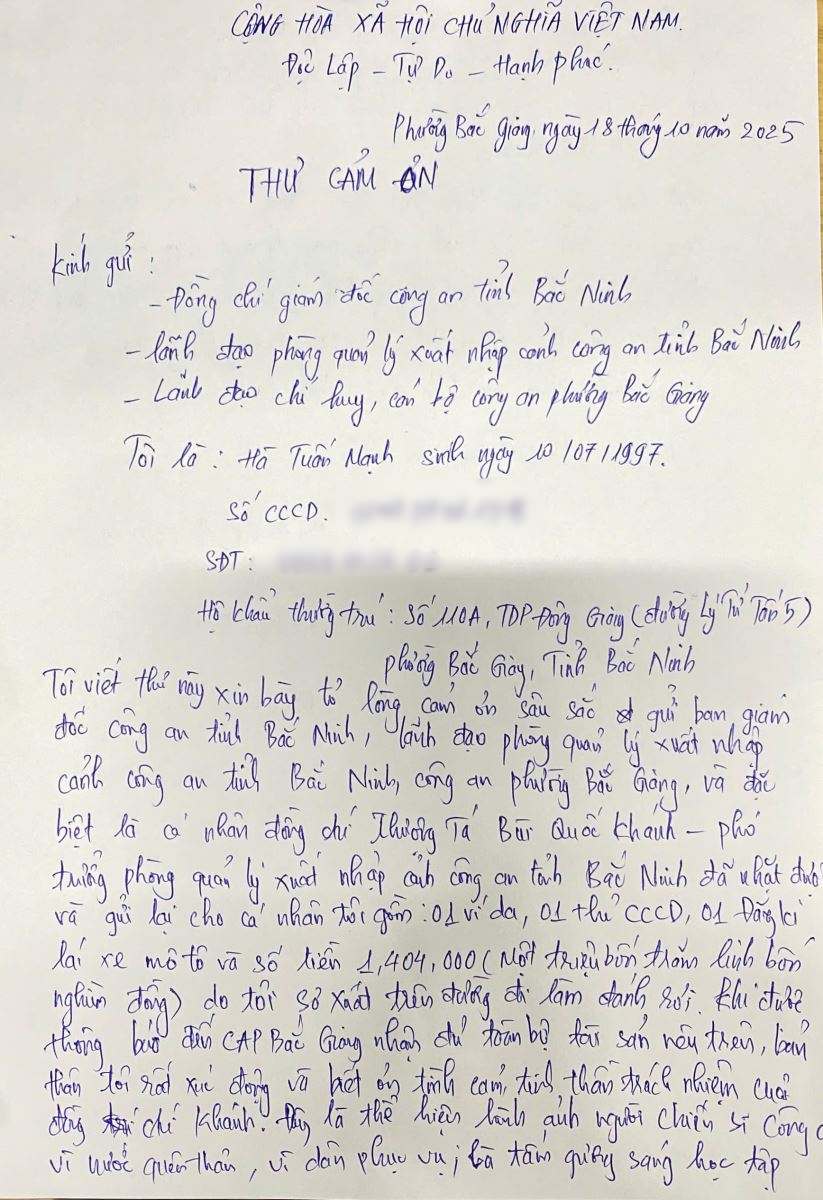 CỘNG HÒA XÃ HỘI CHỦ NGHĨA VIỆT NAM.
Độc Lập - Tự Do - Hạnh phúc.
Phường Bắc Giang, ngày 18 tháng 10 năm 2025
THƯ CẢM ƠN
Kính gửi :
- Đồng chí giám đốc công an tỉnh Bắc Ninh
- lãnh đạo phòng quản lý xuất nhập cảnh công an tỉnh Bắc Ninh
- Lãnh đạo chỉ huy, cán bộ công an phường Bắc Giang
Tôi là : Hà Tuấn Mạnh sinh ngày 10/07/1997.
Số CCCD.
SĐT :
Hộ khẩu thường trú : Số 110A, TDP Đông Giang (đường Lý Tử Tấn 5)
phường Bắc Giang, Tỉnh Bắc Ninh
Tôi viết thư này xin bày tỏ lòng cảm ơn sâu sắc gửi ban giám
đốc công an tỉnh Bắc Ninh, lãnh đạo phòng quản lý xuất nhập
cảnh công an tỉnh Bắc Ninh, công an phường Bắc Giang, và đặc
biệt là cá nhân đồng chí Thượng Tá Bùi Quốc Khánh - phó
trưởng phòng quản lý xuất nhập cảnh công an tỉnh Bắc Ninh đã nhặt được
và gửi lại cho cá nhân tôi gồm : 01 ví da, 01 thẻ CCCD, 01 Đăng kí
lái xe mô tô và số tiền 1,404,000 (Một triệu bốn trăm linh bốn
nghìn đồng) do tôi sơ xuất trên đường đi làm đánh rơi. Khi được
thông báo đến CAP Bắc Giang nhận đủ toàn bộ tài sản nêu trên, bản
thân tôi rất xúc động và biết ơn tình cảm, tinh thần trách nhiệm của
đồng chí Khánh. Đây là thể hiện hình ảnh người chiến sĩ Công a
vì nước quên thân, vì dân phục vụ ; là tấm gương sáng học tập